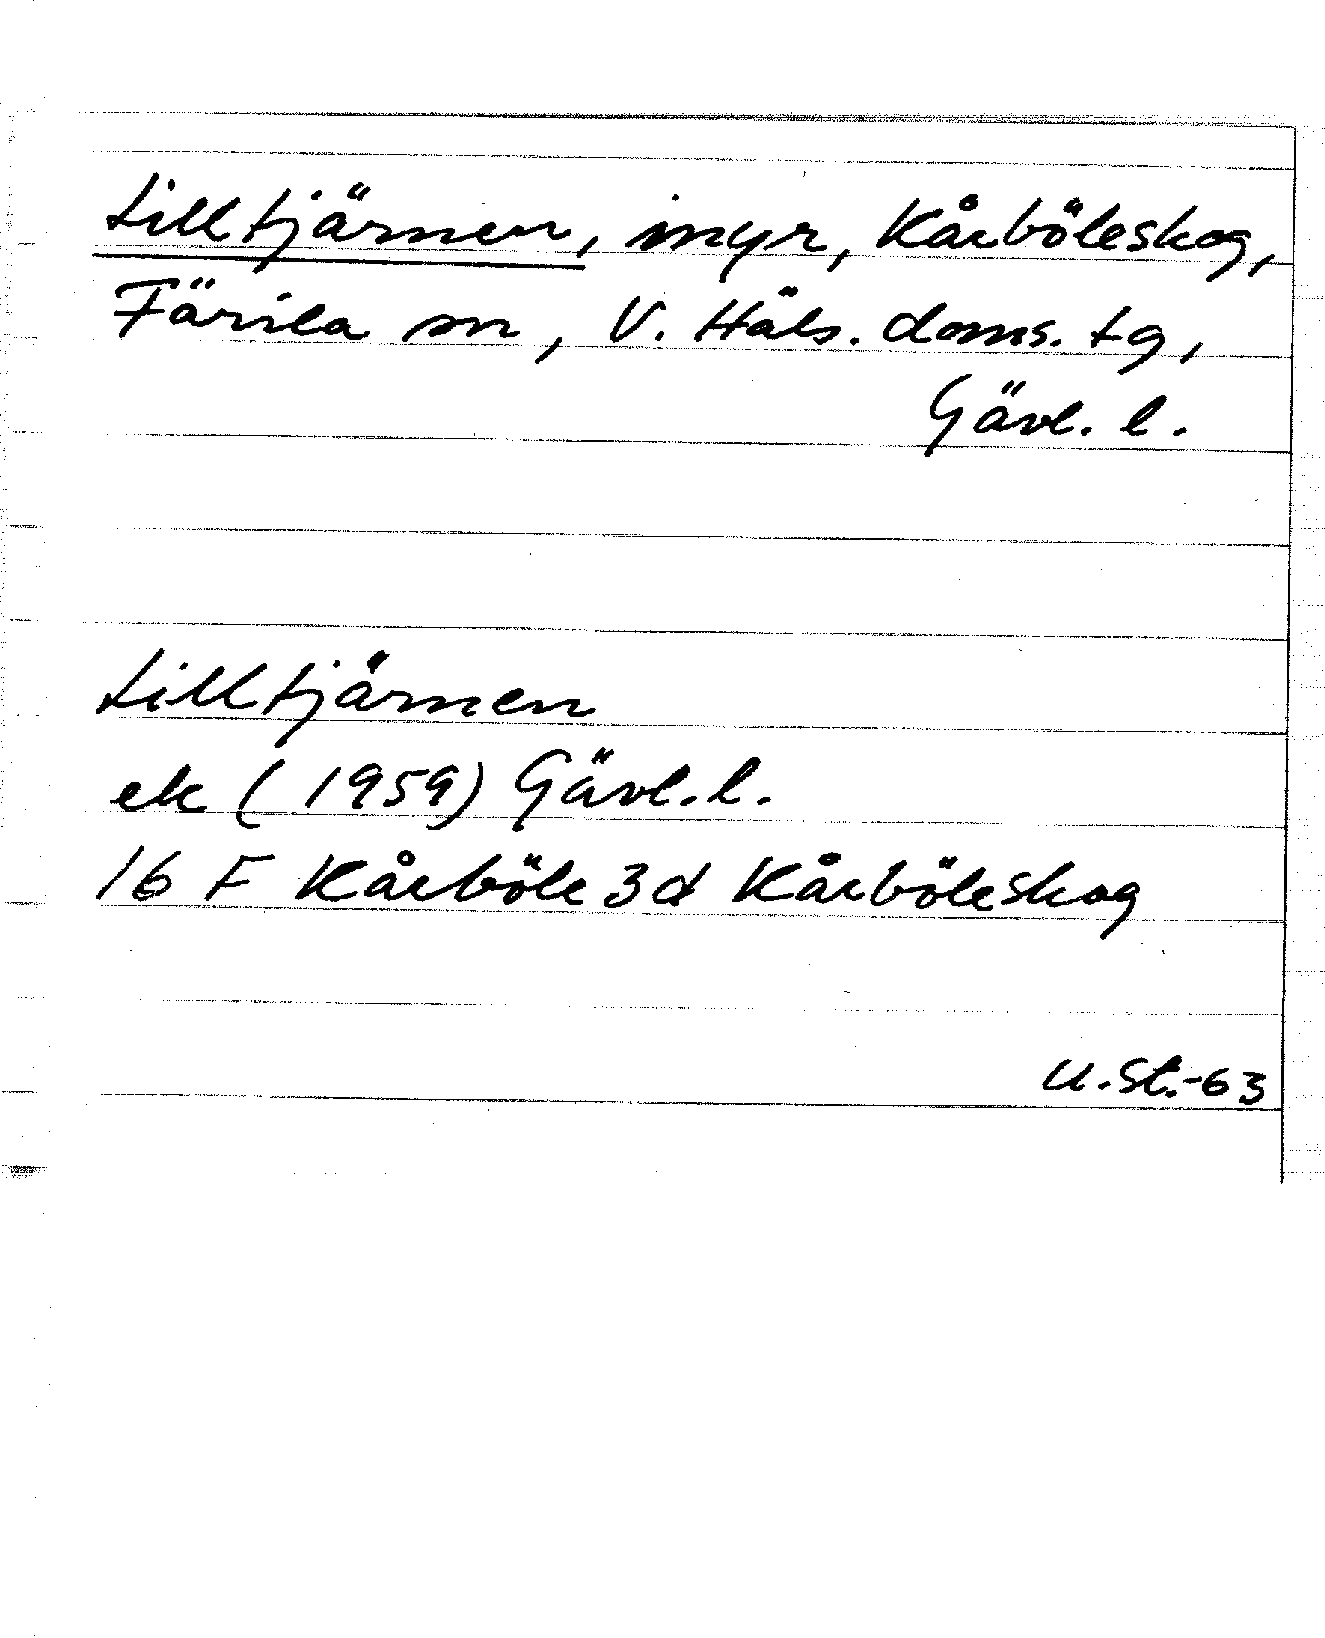 Lilltjärnen, myr, Kårböleskog,
Färila sn, V. Häls. doms. tg,
Gävl. l.
Lilltjärnen
ek (1959) Gävl. l.
16 F Kårböle 3d Kårböleskog
U. St. -63